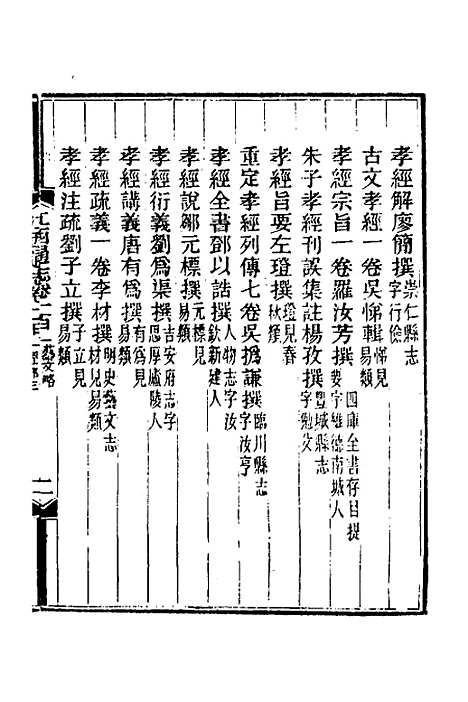 孝經解廖簡撰崇仁縣志字行儉
古文孝經一卷吳悌輯悌見易類
孝經宗旨一卷羅汝芳撰四庫全書存目提要字維德南城人
朱子孝經刊誤集註楊孜撰豐城縣志字勉攵
孝經旨要左瑝撰瑝見春秋類
重定孝經列傳七卷吳撝謙撰臨川縣志字汝亨
孝經全書鄧以誥撰人物志字汝欽新建人
孝經說鄒元標撰元標見易類
孝經衍義劉爲渠撰吉安府志字思厚廬陵人
孝經講義唐有爲撰有爲見易類
孝經疏義一卷李材撰明史藝文志材見易類
孝經注疏劉子立撰子立見易類
江西通志卷一百
藝文略